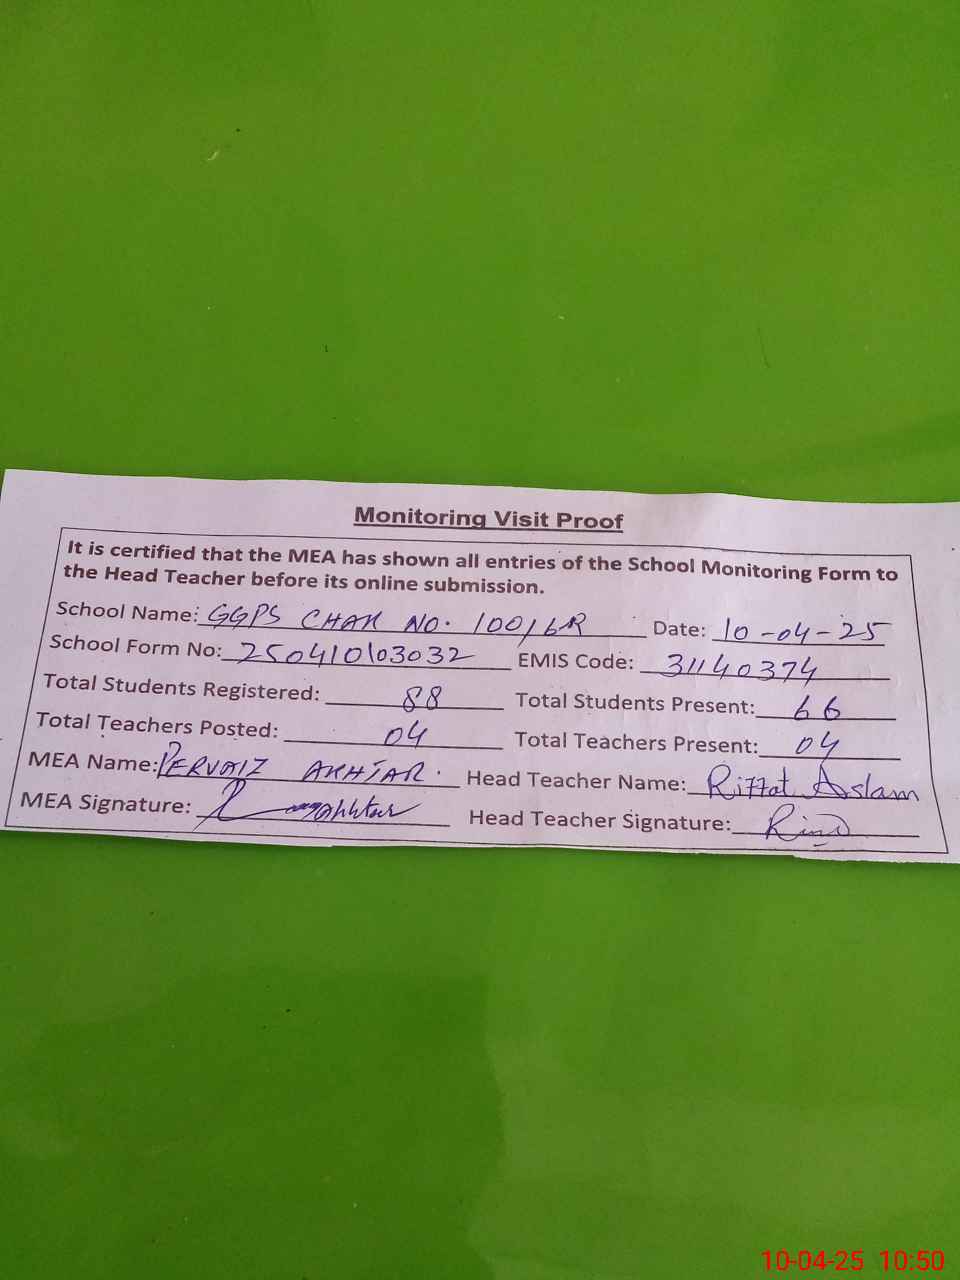 Monitoring Visit Proof
It is certified that the MEA has shown all entries of the School Monitoring Form to
the Head Teacher before its online submission.
School Name: GGPS CHAK NO. 100/6R Date: 10-04-25
School Form No: 250410103032 EMIS Code: 31140374
Total Students Registered: 88 Total Students Present: 66
Total Teachers Posted: 04 Total Teachers Present: 04
MEA Name: PERVAIZ AKHTAR. Head Teacher Name: Riffat Aslam
MEA Signature: Head Teacher Signature:
10-04-25 10:50